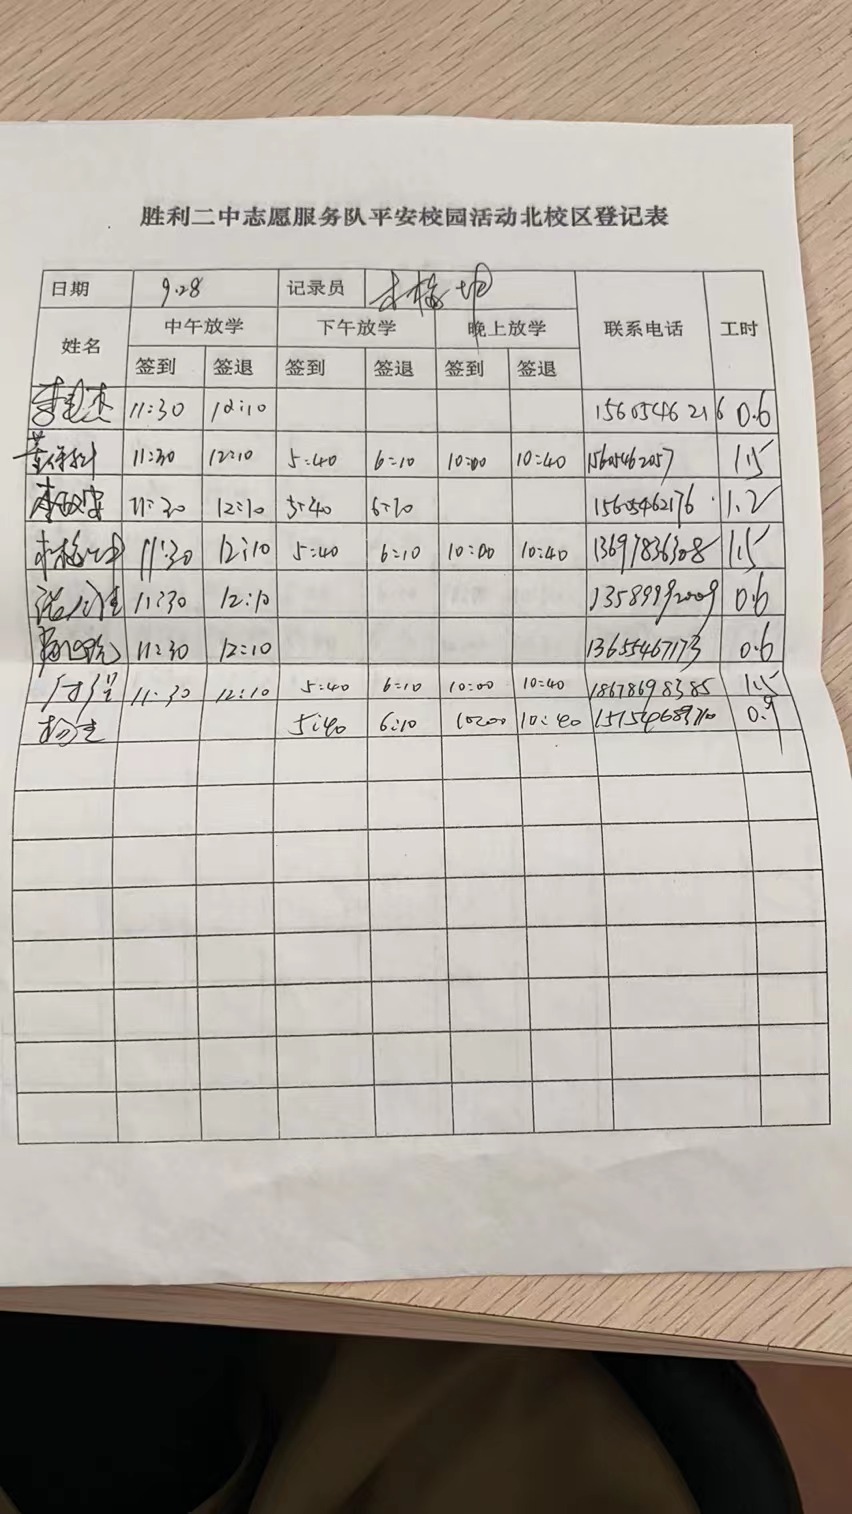 胜利二中志愿服务队平安校园活动北校区登记表
日期 9.28 记录员
姓名 中午放学 下午放学 晚上放学 联系电话 工时
签到 签退 签到 签退 签到 签退
11:30 12:10 15605462216 0.6
11:30 12:10 5:40 6:10 10:00 10:40 15605462057 1.5
11:30 12:10 5:40 6:10 15605462176 1.2
11:30 12:10 5:40 6:10 10:00 10:40 13697836308 1.5
11:30 12:10 13589992009 0.6
11:30 12:10 13655467173 0.6
11:30 12:10 5:40 6:10 10:00 10:40 18678698385 1.5
5:40 6:10 10:00 10:40 0.9